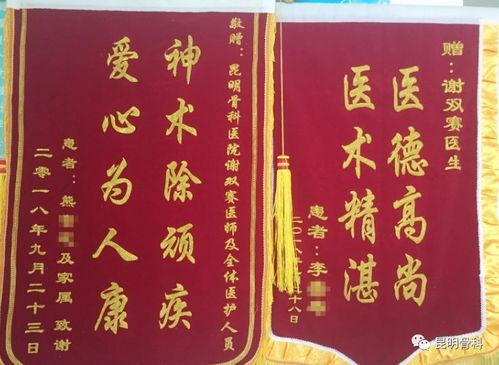 敬赠：昆明骨科医院谢双赛医师及全体医护人员
神术除顽疾
爱心为人康
患者：熊 及家属 致谢
二零一八年九月二十三日
赠：谢双赛医生
医德高尚
医术精湛
患者：李
二〇一 十八日
昆明骨科